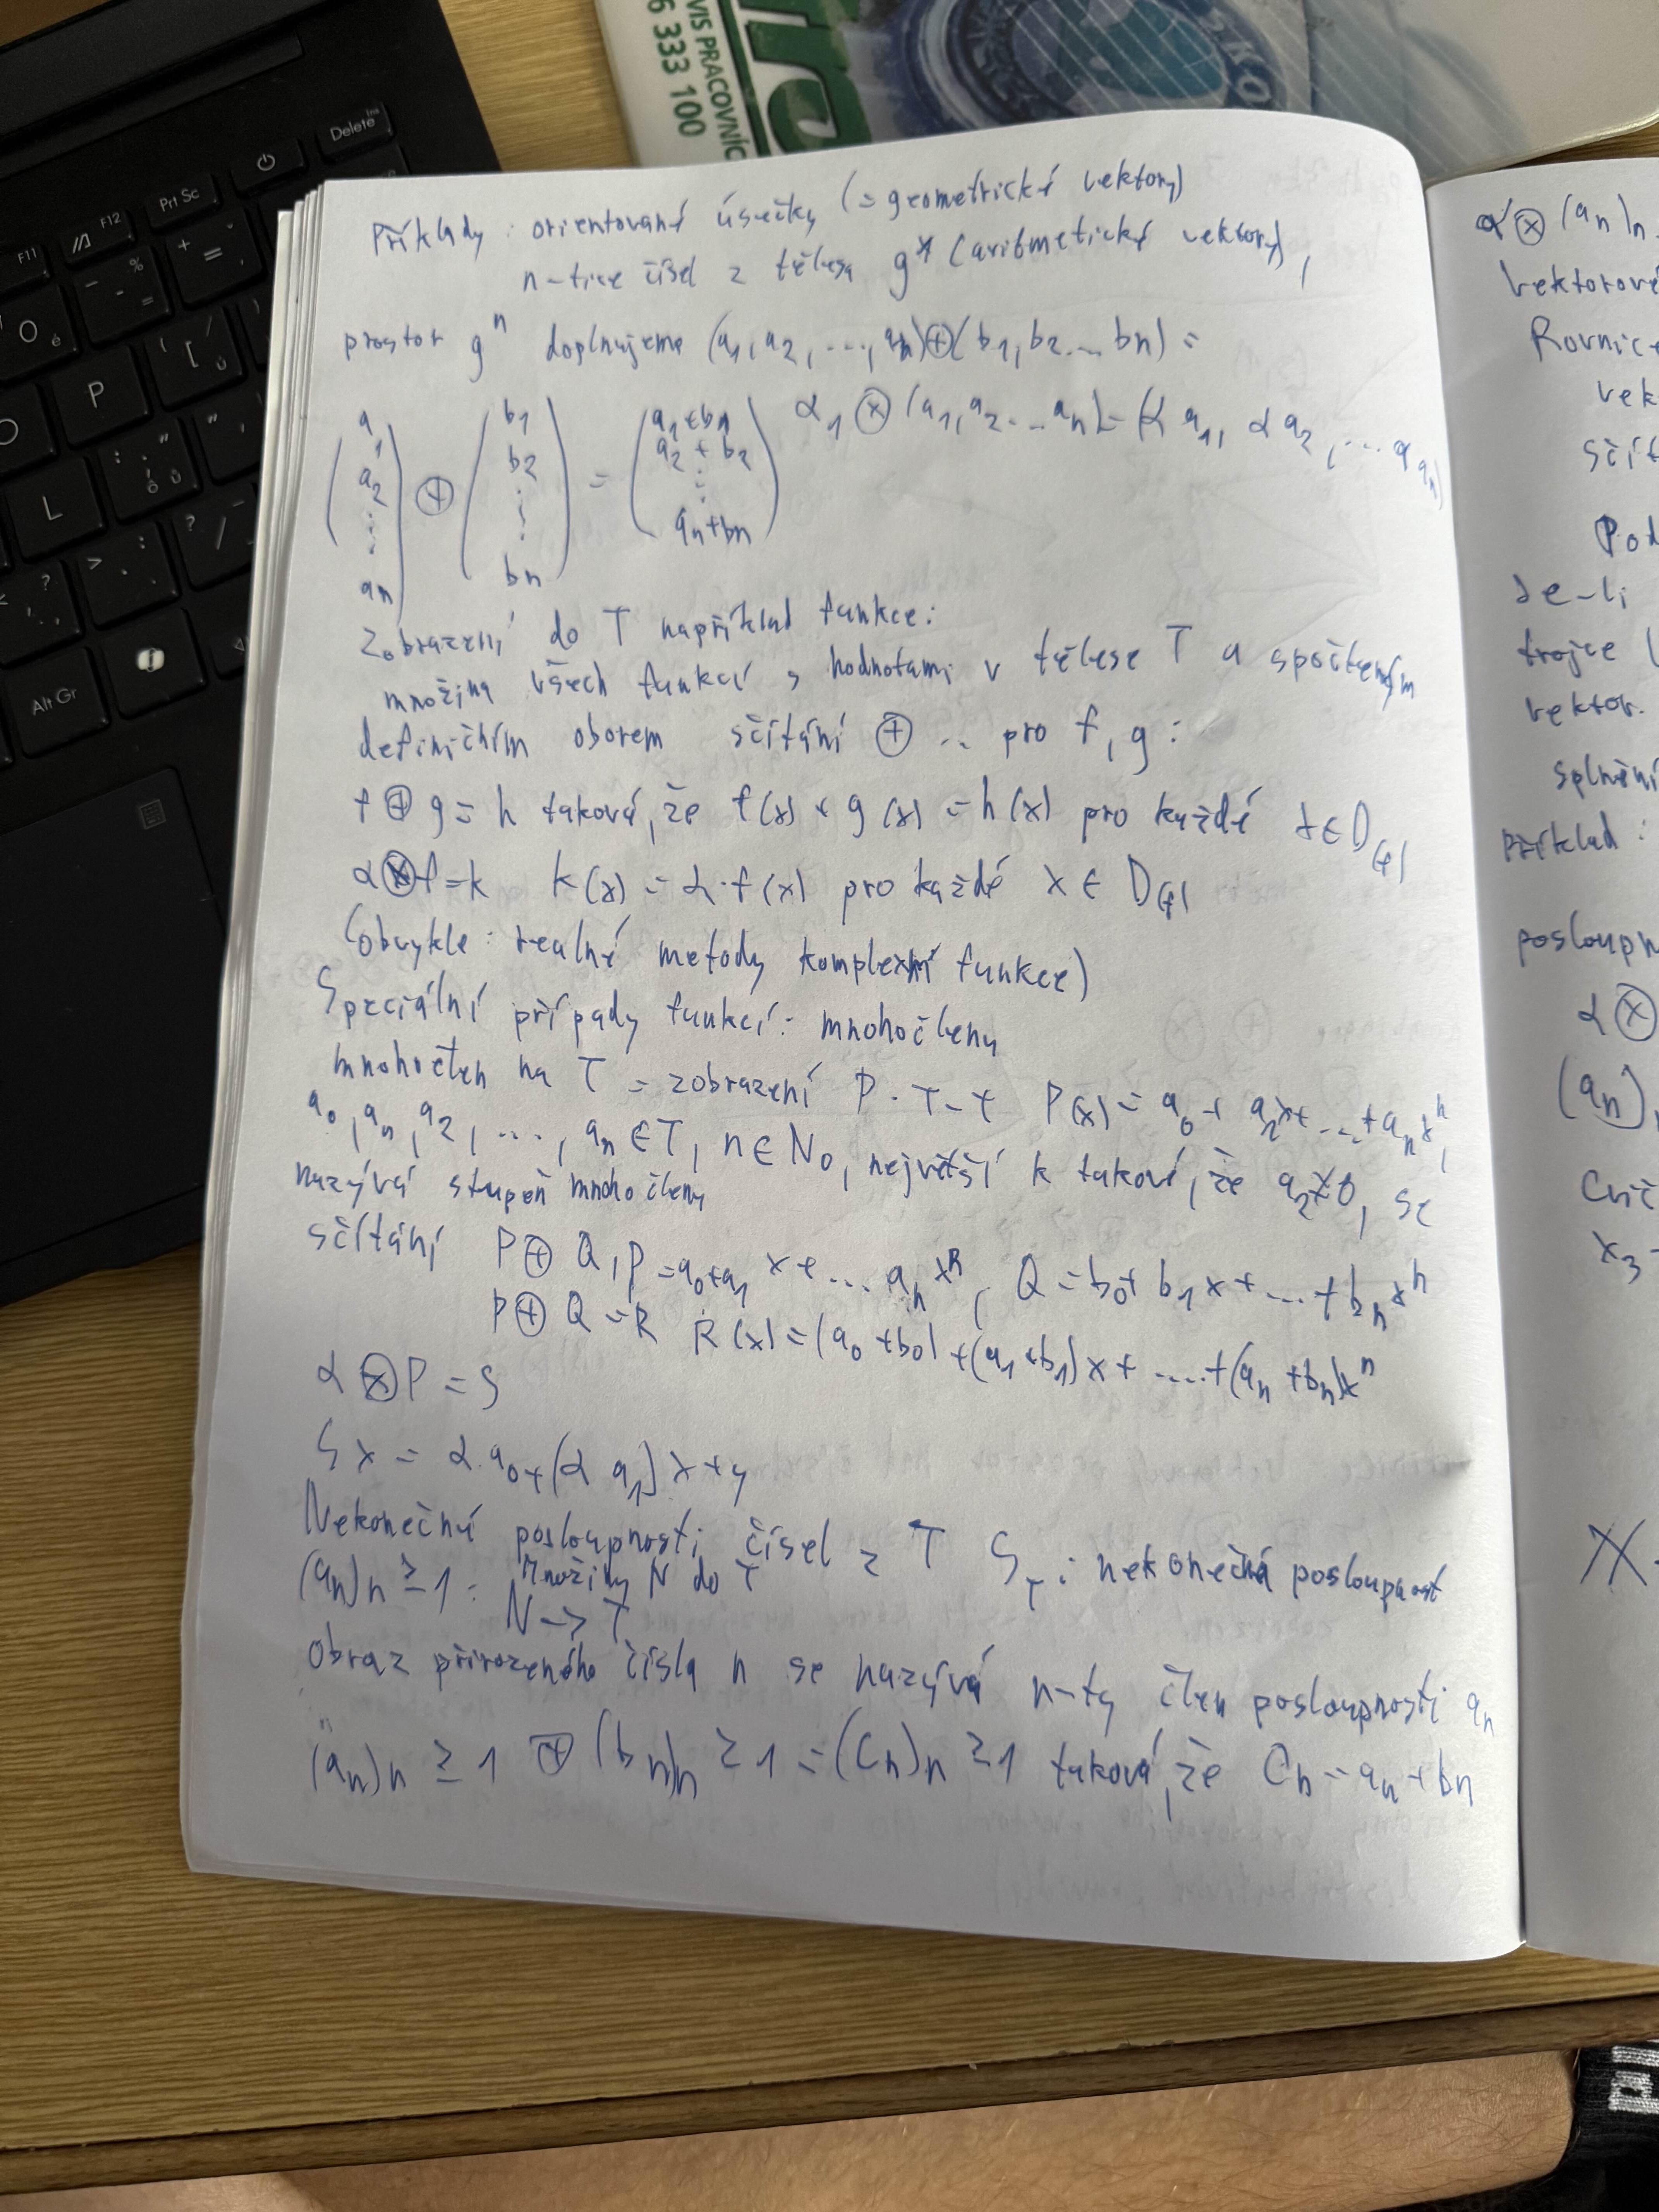 6 333 100
VIS PRACOVNÍC
F11
F12
Prt Sc
Delete
Ins
P
L
Alt Gr
Příklady: orientované úsečky (= geometrické vektory)
n-tice čísel z tělesa g* (aritmetické vektory),
prostor gⁿ doplnujeme (a1, a2, ..., an) ⊕ (b1, b2 ... bn) =
(a1 a2 ⋮ an) ⊕ (b1 b2 ⋮ bn) = (a1+b1 a2+b2 ⋮ an+bn) α1 ⊗ (a1, a2 ... an) = (α a1, α a2, ... α an)
Zobrazení do T například funkce:
množina všech funkcí s hodnotami v tělese T a společným
definičním oborem sčítání ⊕ .. pro f, g:
f ⊕ g = h taková, že f(x) + g(x) = h(x) pro každé x ∈ D(f)
α ⊗ f = k k(x) = α · f(x) pro každé x ∈ D(f)
(obvykle: realné metody komplexní funkce)
Speciální případy funkcí: mnohočleny
mnohočlen na T = zobrazení P · T - t P(x) = a0 + a2x + ... + an xⁿ,
a0, an, a2, ..., an ∈ T, n ∈ N0, největší k takové, že a2 ≠ 0, se
nazývá stupeň mnohočleny
sčítání P ⊕ Q, P = a0 + a1 x + ... an xⁿ, Q = b0 + b1 x + ... + bn xⁿ
P ⊕ Q = R R(x) = (a0 + b0) + (a1 + b1)x + .... + (an + bn)xⁿ
α ⊗ P = S
S x = α·a0 + (α a1) x + y
Nekonečné posloupnosti čísel z T ST: nekonečná posloupnost
(an)n ≥ 1: množiny N do T
N -> T
Obraz přirozeného čísla n se nazývá n-tý člen posloupnosti an
(an)n ≥ 1 ⊕ (bn)n ≥ 1 = (Cn)n ≥ 1 taková, že Cn = an + bn
α ⊗ (an)n
vektorové
Rovnice
vek
sčít
Pod
Je-li
trojce (
vektor.
splnění
příklad:
posloupn
α ⊗
(an)n
Cvič
x3 -